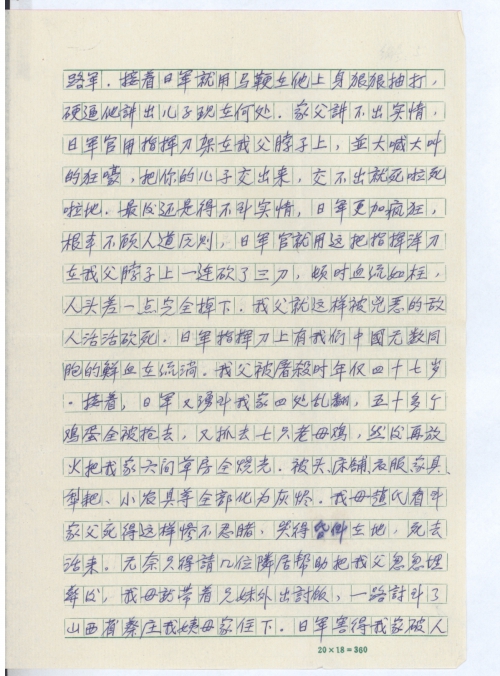 路军．接着日军就用马鞭在他上身狠狠抽打，
硬逼他讲出儿子现在何处．家父讲不出实情，
日军官用指挥刀架在我父脖子上，並大喊大叫
的狂嚎，把你的儿子交出来，交不出就死啦死
啦地．最后还是得不到实情，日军更加疯狂，
根本不顾人道原则，日军官就用这把指挥洋刀
在我父脖子上一连砍了三刀，顿时血流如柱，
人头差一点完全掉下．我父就这样被兇恶的敌
人活活砍死．日军指挥刀上有我们中國无数同
胞的鲜血在流淌．我父被屠殺时年仅四十七岁
．接着，日军又涌到我家四处乱翻，五十多个
鸡蛋全被抢去，又抓去七只老母鸡，然后再放
火把我家六间草房全烧光．被头、床铺衣服、家具、
犁耙、小农具等全部化为灰烬．我母趙氏看到
家父死得这样惨不忍睹，哭得倒在地，死去
活来．无奈只得請几位隣居幫助把我父忽忽埋
葬后，我母就带着兄妹外出討飯，一路討到了
山西省蔡庄我姨母家住下．日军害得我家破人
20×18=360